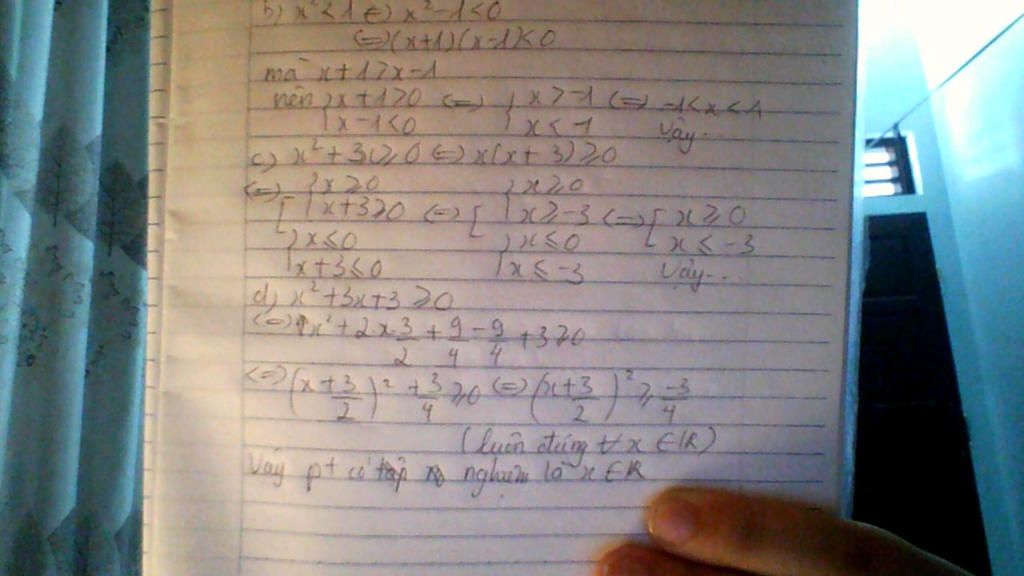 b) x² < 1 <=> x² - 1 < 0
<=> (x+1)(x-1) < 0
mà x+1 > x-1
nên { x+1 > 0 <=> { x > -1 <=> -1 < x < 1
{ x-1 < 0 { x < 1 Vậy...
c) x² + 3x ≥ 0 <=> x(x+3) ≥ 0
<=> [ { x ≥ 0 [ { x ≥ 0
{ x+3 ≥ 0 <=> { x ≥ -3 <=> [ x ≥ 0
{ x ≤ 0 { x ≤ 0 [ x ≤ -3
{ x+3 ≤ 0 { x ≤ -3 Vậy...
d) x² + 3x + 3 ≥ 0
<=> x² + 2x·3/2 + 9/4 - 9/4 + 3 ≥ 0
<=> (x + 3/2)² + 3/4 ≥ 0 <=> (x + 3/2)² ≥ -3/4
(luôn đúng ∀ x ∈ R)
Vậy pt có tập nghiệm là x ∈ R